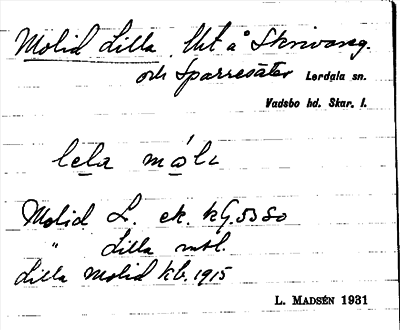 Molid Lilla Ut å Skrivareg.
och Sparresäter Lerdala sn.
Vadsbo hd. Skar. l.
lela
Molid L. ek.
" Lilla
Lilla Molid kb. 1915
L. MADSÉN 1931